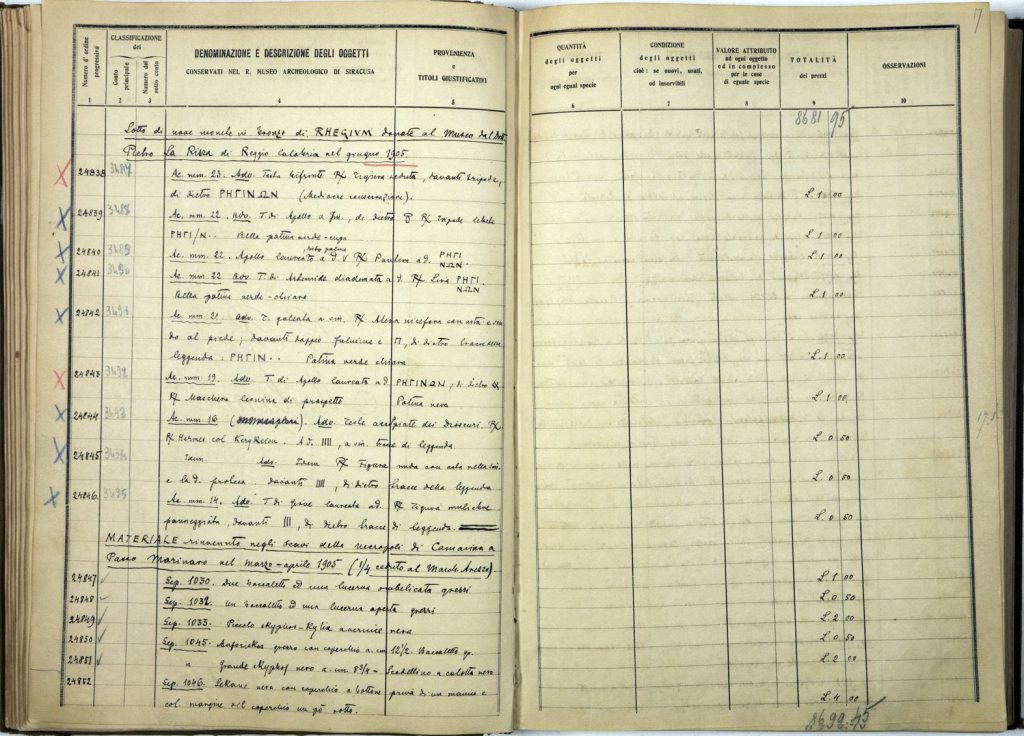 Numero d'ordine progressivo
CLASSIFICAZIONE del
Conto principale
Numero del sotto conto
DENOMINAZIONE E DESCRIZIONE DEGLI OGGETTI
CONSERVATI NEL R. MUSEO ARCHEOLOGICO DI SIRACUSA
PROVENIENZA
e
TITOLI GIUSTIFICATIVI
1 2 3 4 5
Lotto di nove monete in bronzo di RHEGIVM donate al Museo dal Dott.
Pietro La Rizza di Reggio Calabria nel giugno 1905
24838 3487 Ae. mm. 23. Adv. Testa bifronte Rx Figura seduta, davanti tripode,
di dietro ΡΗΓΙΝΩΝ (Mediocre conservazione).
24839 3488 Ae. mm. 22. Adv. T. di Apollo a sin., di dietro Rx Tripode
ΡΗΓΙ/Ν.. Bella patina verde-
24840 3489 Ae. mm. 22. Apollo laureato a d. Rx Pantera a d. ΡΗΓΙ
ΝΩΝ.
24841 3490 Ae. mm. 22 Adv. T. di Artemide diademata a d. Rx Lira ΡΗΓΙ
ΝΩΝ
Bella patina verde-chiara
24842 3491 Ae. mm. 21. Adv. T. galeata a sin. Rx Atena nicefora con asta e scu
do al piede; davanti doppio fulmine e Π, di dietro tracce della
leggenda: ΡΗΓΙΝ.. Patina verde chiara
24843 3492 Ae. mm. 19. Adv. T. di Apollo laureata a d. ΡΗΓΙΝΩΝ, di dietro
Rx Maschera leonina di prospetto Patina nera
24844 3493 Ae. mm. 16 Adv. Teste accoppiate dei Dioscuri. Rx
Rx Hermes col Kerykeion. A d. IIII, a sin. tracce di leggenda.
24845 3494 Idem. Adv. Idem Rx Figura nuda con asta nella sin.
e la d. protesa. davanti IIII, di dietro tracce della leggenda
24846 3495 Ae. mm. 14. Adv. T. di Giove laureata ad. Rx Figura muliebre
panneggiata, davanti III, di dietro tracce di leggenda.
MATERIALE rinvenuto negli Scavi della necropoli di Camarina a
Passo Marinaro nel marzo-aprile 1905 (1/4 ceduto al March. Arezzo).
24847 Sep. 1030. Due boccaletti ed una lucerna ombelicata grezzi
24848 Sep. 1032. Un boccaletto ed una lucerna aperta grezzi
24849 Sep. 1033. Piccolo skyphos-Kylix a vernice nera
24850 Sep. 1045. grezzo con coperchio a. cm. 12 1/2. Boccaletto gr.
24851 " Grande skyphos nero a. cm. 8 3/4 - Scodellino a calotta nero
24852 Sep. 1046. Lekane nera con coperchio a bottone priva di un manico e
col margine del coperchio un pò rotto.
7
QUANTITÀ
degli oggetti
per
ogni egual specie
CONDIZIONE
degli oggetti
cioè: se nuovi, usati,
od inservibili
VALORE ATTRIBUITO
ad ogni oggetto
od in complesso
per le cose
di eguale specie
TOTALITÀ
dei prezzi
OSSERVAZIONI
6 7 8 9 10
8681 95
L. 1 00
L. 1 00
L. 1 00
L. 1 00
L. 1 00
L. 1 00
L. 0 50
L. 0 50
L. 0 50
L. 1 00
L. 0 50
L. 2 00
L. 0 50
L. 2 00
L. 4 00
8699.45